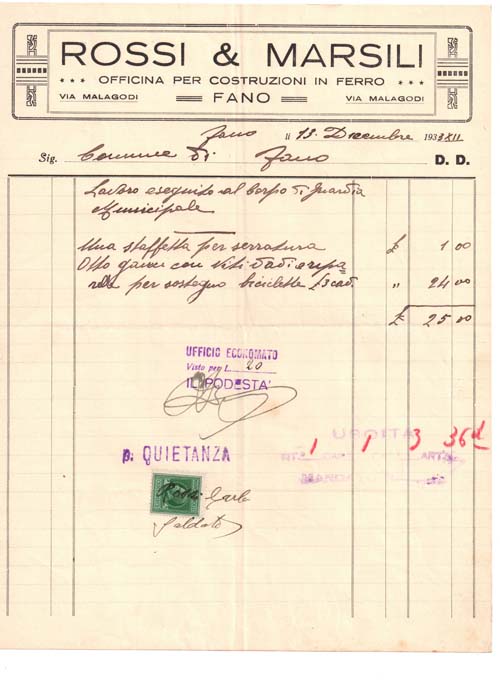 ROSSI & MARSILI
OFFICINA PER COSTRUZIONI IN FERRO
VIA MALAGODI FANO VIA MALAGODI
Fano li 13. Dicembre 1933 XII
Sig. Comune di Fano D. D.
Lavoro eseguito al Corpo di Guardia
Municipale
Una staffetta per serratura £ 1 00
Otto ganci con viti dadi e ripa
per sostegno biciclette £ 3 cad. " 24 00
£ 25 00
UFFICIO ECONOMATO
Visto per L. 20
IL PODESTA'
USCITA
p. QUIETANZA
1 1 3 36d
Rossi Carlo
Saldato